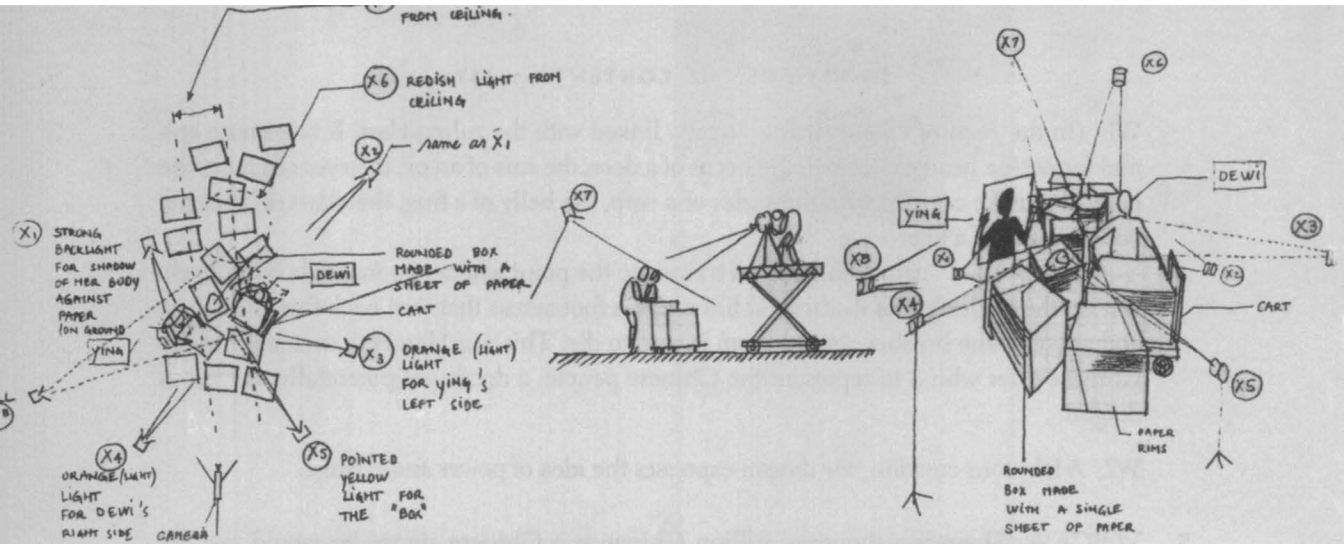 FROM CEILING.
X6 REDISH LIGHT FROM
CEILING
X2 same as X1
X1 STRONG
BACKLIGHT
FOR SHADOW
OF HER BODY
AGAINST
PAPER
(ON GROUND
YING
DEWI
ROUNDED BOX
MADE WITH A
SHEET OF PAPER
CART
X3 ORANGE (LIGHT)
LIGHT
FOR YING'S
LEFT SIDE
X4
ORANGE (LIGHT)
LIGHT
FOR DEWI'S
RIGHT SIDE
CAMERA
X5 POINTED
YELLOW
LIGHT FOR
THE "BOX"
X7
X8
X7
X6
YING
DEWI
X3
X1
X2
X4
CART
X5
PAPER
RIMS
ROUNDED
BOX MADE
WITH A SINGLE
SHEET OF PAPER